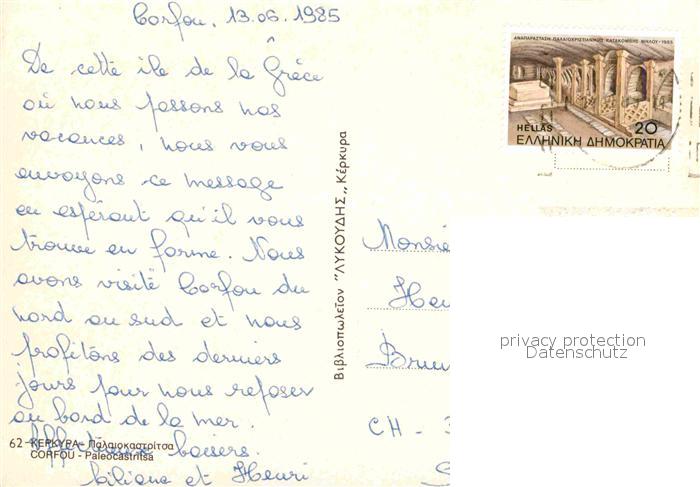 Corfou, 13.06.1985
De cette île de la Grèce
où nous passons nos
vacances, nous vous
envoyons ce message
en espérant qu'il vous
trouve en forme. Nous
avons visité Corfou du
nord au sud et nous
profitons des derniers
jours pour nous reposer
au bord de la mer.
Affectueux baisers.
Liliane et Henri
62 - ΚΕΡΚΥΡΑ - Παλαιοκαστρίτσα
CORFOU - Paleocastritsa
Βιβλιοπωλεῖον "ΛΥΚΟΥΔΗΣ,, Κέρκυρα
ΑΝΑΠΑΡΑΣΤΑΣΗ ΠΑΛΑΙΟΧΡΙΣΤΙΑΝΙΚΗΣ ΚΑΤΑΚΟΜΒΗΣ ΜΗΛΟΥ - 1985
HELLAS 20
ΕΛΛΗΝΙΚΗ ΔΗΜΟΚΡΑΤΙΑ
Monsie
Hen
CH - 3
privacy protection
Datenschutz